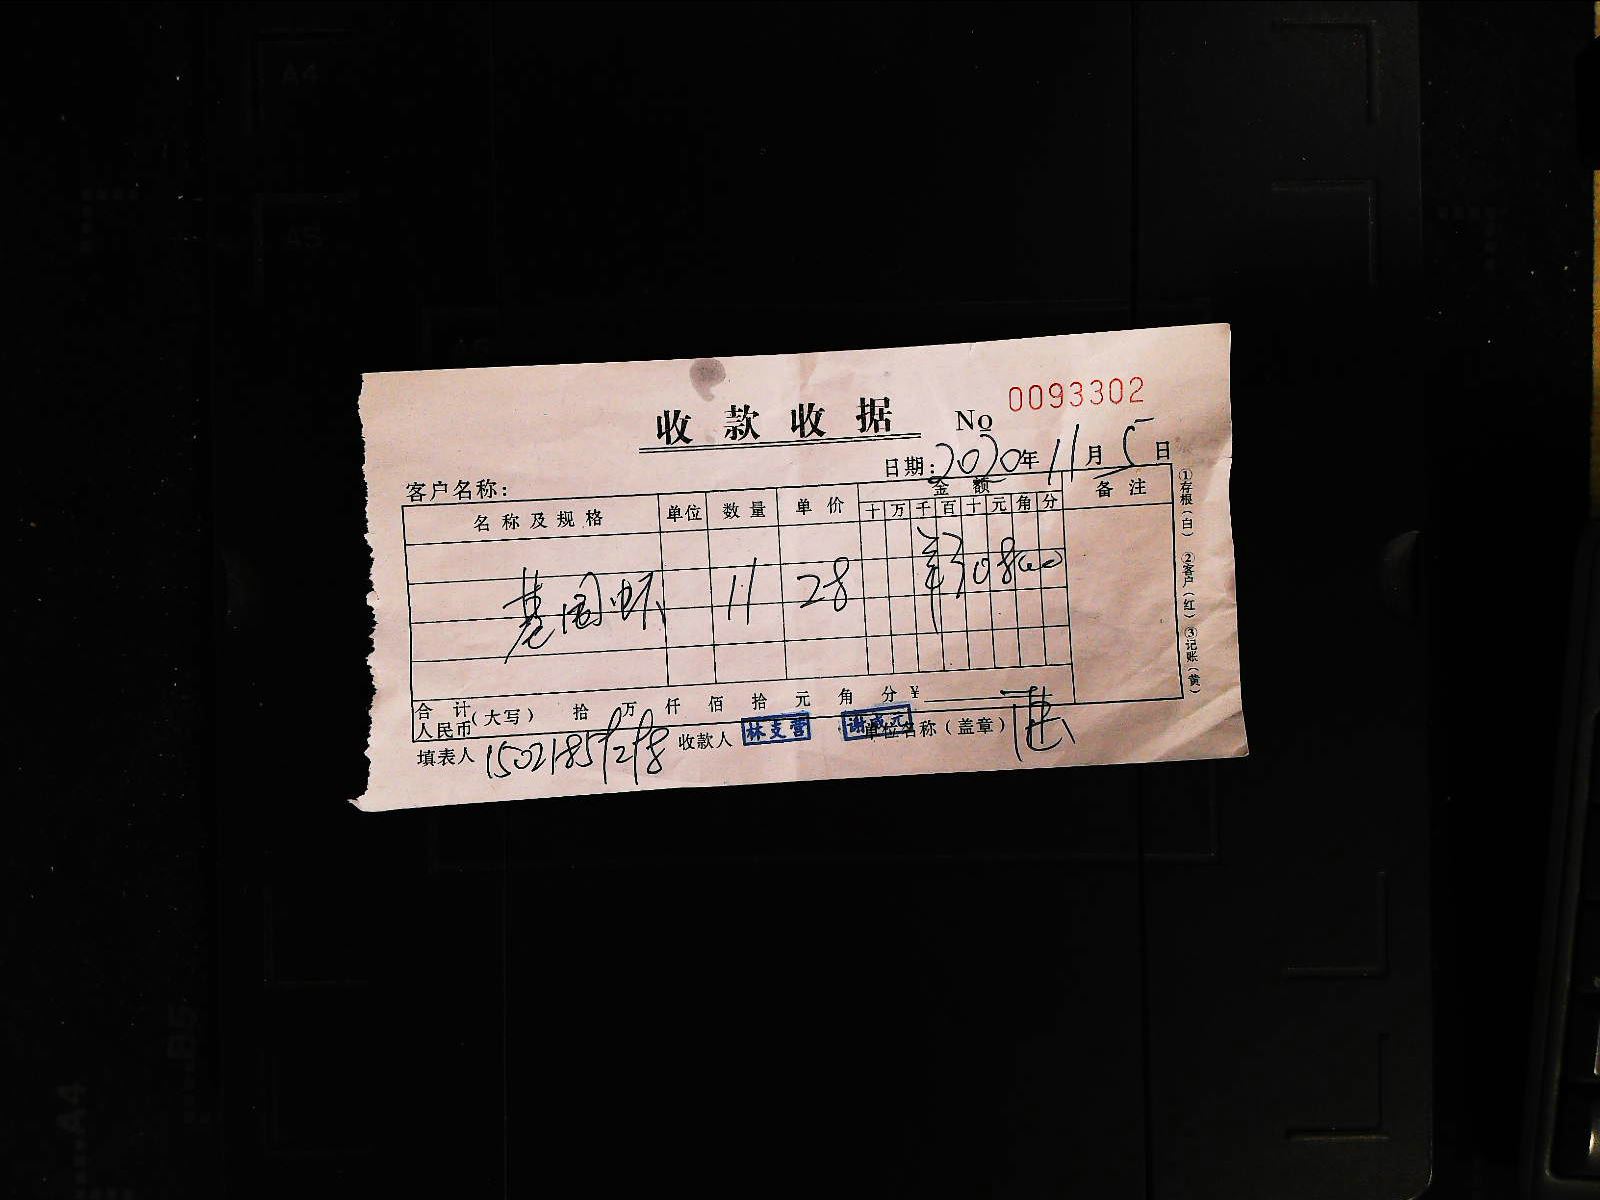 收款收据 No 0093302
日期:2020年11月5日
客户名称:
名称及规格 单位 数量 单价 金额 备注
十 万 千 百 十 元 角 分
基围虾 11 28 ¥30800
合计人民币(大写) 拾 万 仟 佰 拾 元 角 分 ¥
填表人 15021851218 收款人 林支营 谢成元 单位名称(盖章)
①存根(白) ②客户(红) ③记账(黄)
A4
A5
B5
A4